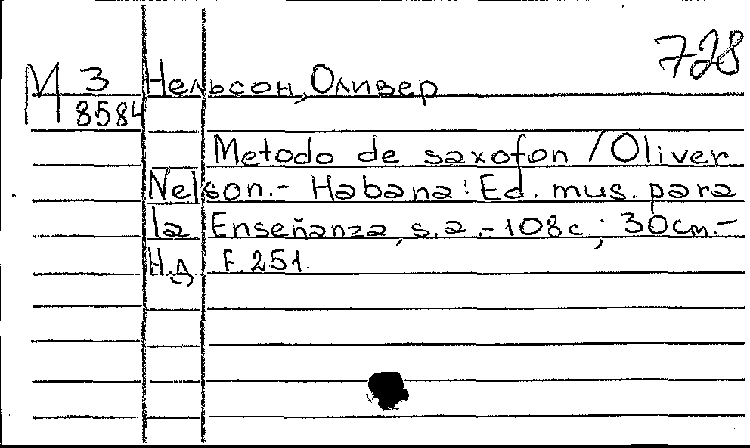 728
М З Нельсон, Оливер
8584
Metodo de saxofon / Oliver
Nelson.- Habana: Ed. mus. para
la Enseñanza, s.a.- 108c.; 30cm.-
Н.д. F.251.